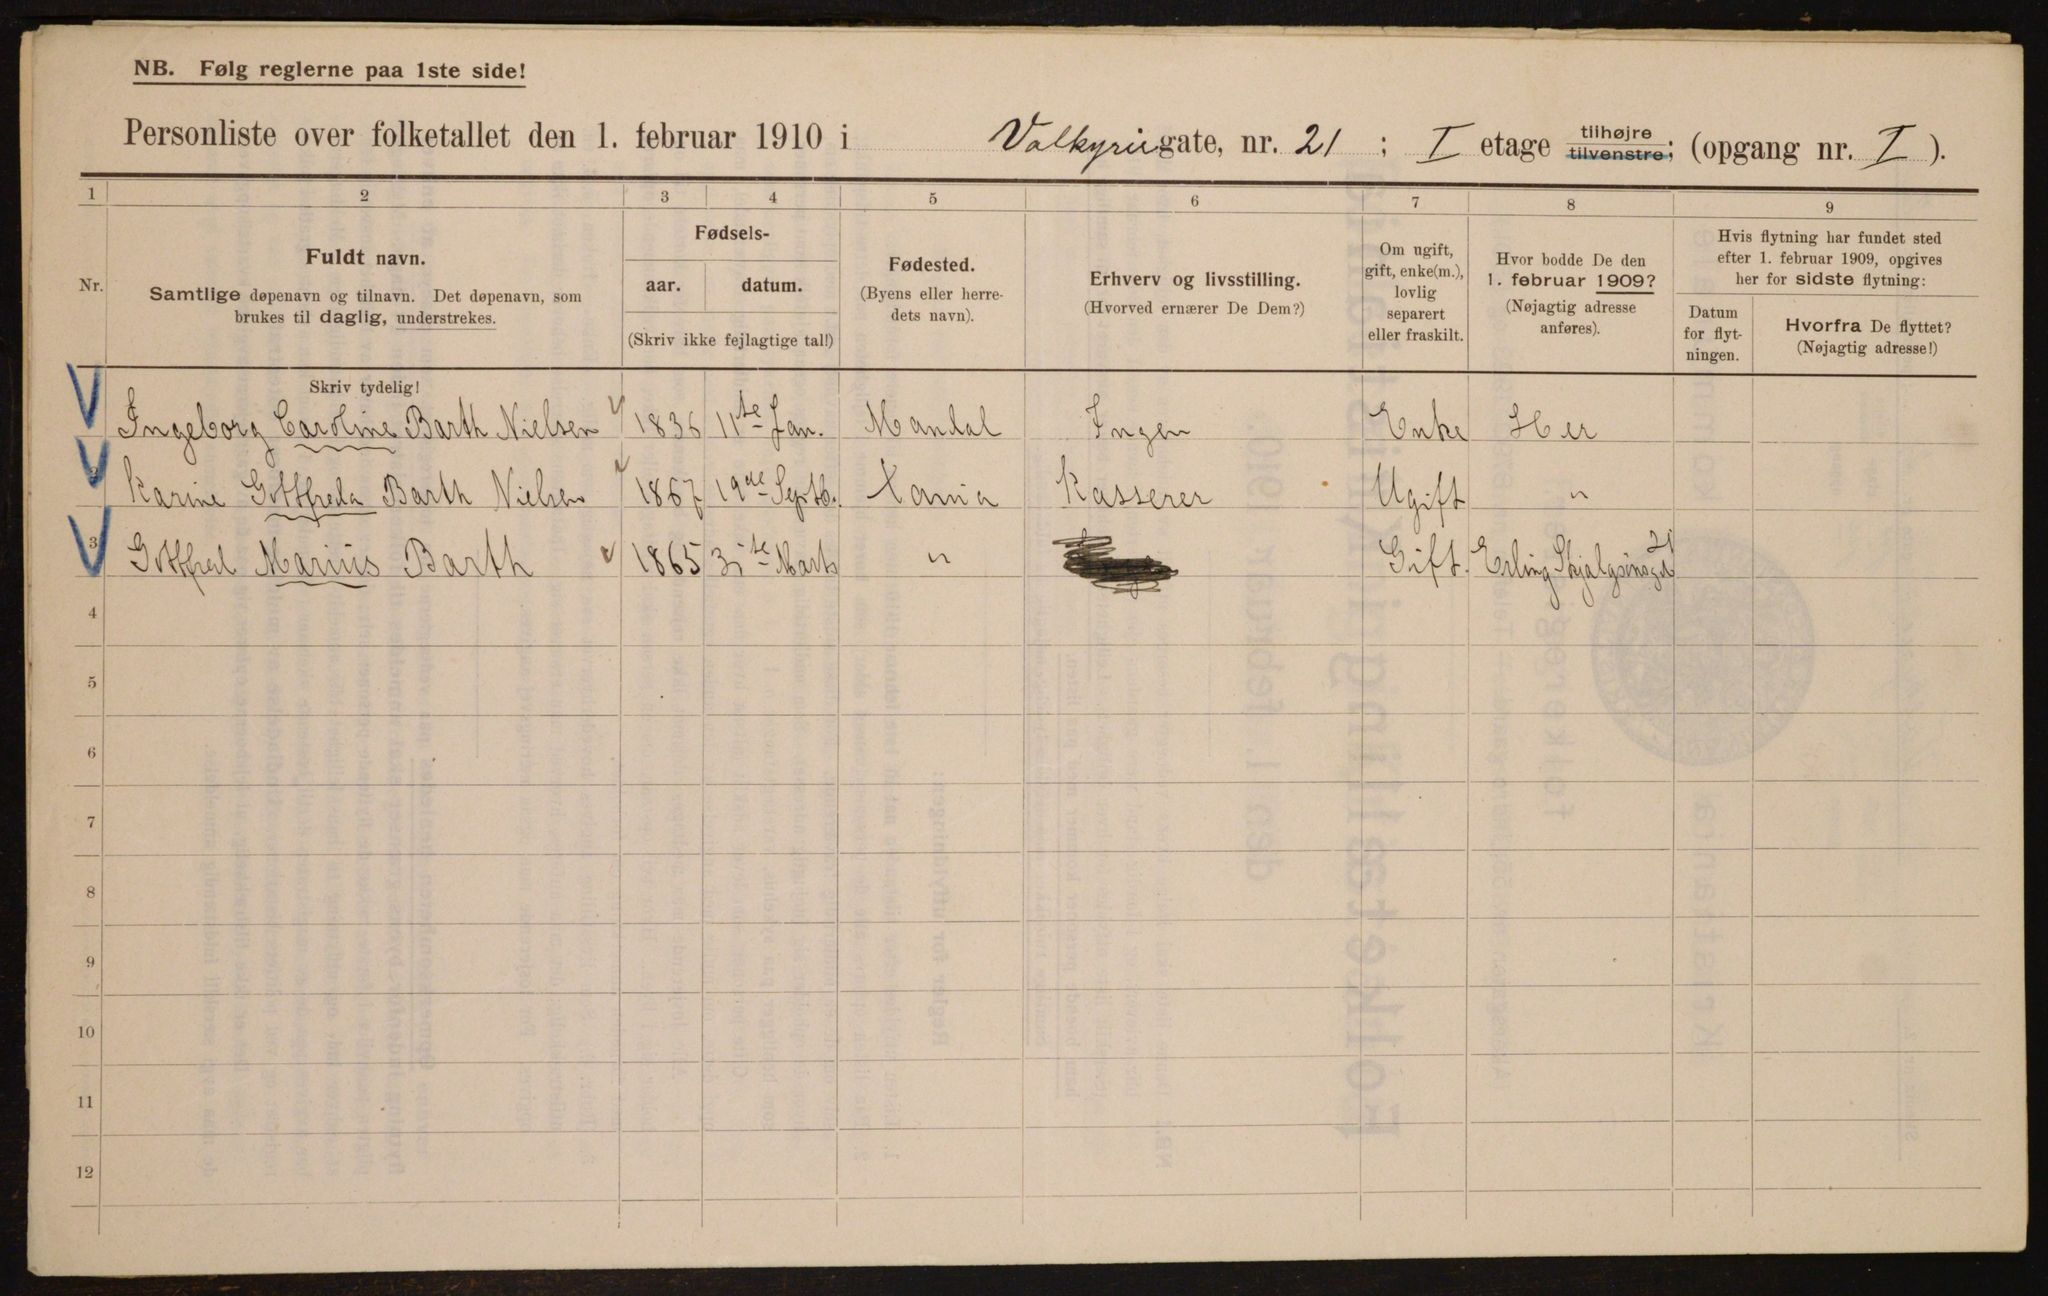 NB. Følg reglerne paa 1ste side!
Personliste over folketallet den 1. februar 1910 i Valkyriegate, nr. 21 ; I etage tilhøjre tilvenstre; (opgang nr. I ).
1 2 3 4 5 6 7 8 9
Nr.
Fuldt navn.
Samtlige døpenavn og tilnavn. Det døpenavn, som
brukes til daglig, understrekes.
Fødsels-
aar. datum.
(Skriv ikke fejlagtige tal!)
Fødested.
(Byens eller herre-
dets navn).
Erhverv og livsstilling.
(Hvorved ernærer De Dem?)
Om ugift,
gift, enke(m.),
lovlig
separert
eller fraskilt.
Hvor bodde De den
1. februar 1909?
(Nøjagtig adresse
anføres).
Hvis flytning har fundet sted
efter 1. februar 1909, opgives
her for sidste flytning:
Datum
for flyt-
ningen.
Hvorfra De flyttet?
(Nøjagtig adresse!)
Skriv tydelig!
Ingeborg Caroline Barth Nielsen 1836 11te Jan. Mandal Ingen Enke Her
2 Karine Gottfreda Barth Nielsen 1867 19de Septb. Xania Kasserer Ugift "
3 Gottfred Marius Barth 1865 31te Marts " Gift. Erling Skjalgsønsgd 21
4
5
6
7
8
9
10
11
12